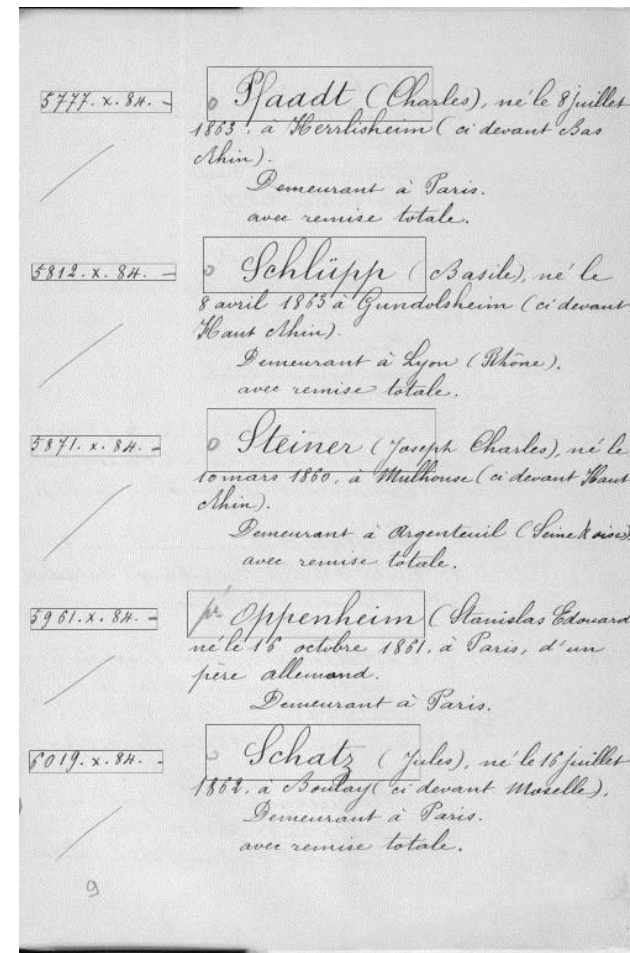 5777. x. 84. - o Pfaadt (Charles), né le 8 juillet
1863. à Herrlisheim (ci devant Bas
Rhin).
Demeurant à Paris.
avec remise totale.
5812. x. 84. - o Schlüpp (Basile), né le
8 avril 1863 à Gundolsheim (ci devant
Haut Rhin).
Demeurant à Lyon (Rhône).
avec remise totale.
5871. x. 84. - o Steiner (Joseph Charles), né le
10 mars 1860, à Mulhouse (ci devant Haut
Rhin).
Demeurant à Argenteuil (Seine & oise).
avec remise totale.
5961. x. 84. - Oppenheim (Stanislas Edouard
né le 16 octobre 1861, à Paris, d'un
père allemand.
Demeurant à Paris.
6019. x. 84. - o Schatz (Jules), né le 16 juillet
1862. à Boulay (ci devant Moselle).
Demeurant à Paris.
avec remise totale.
9